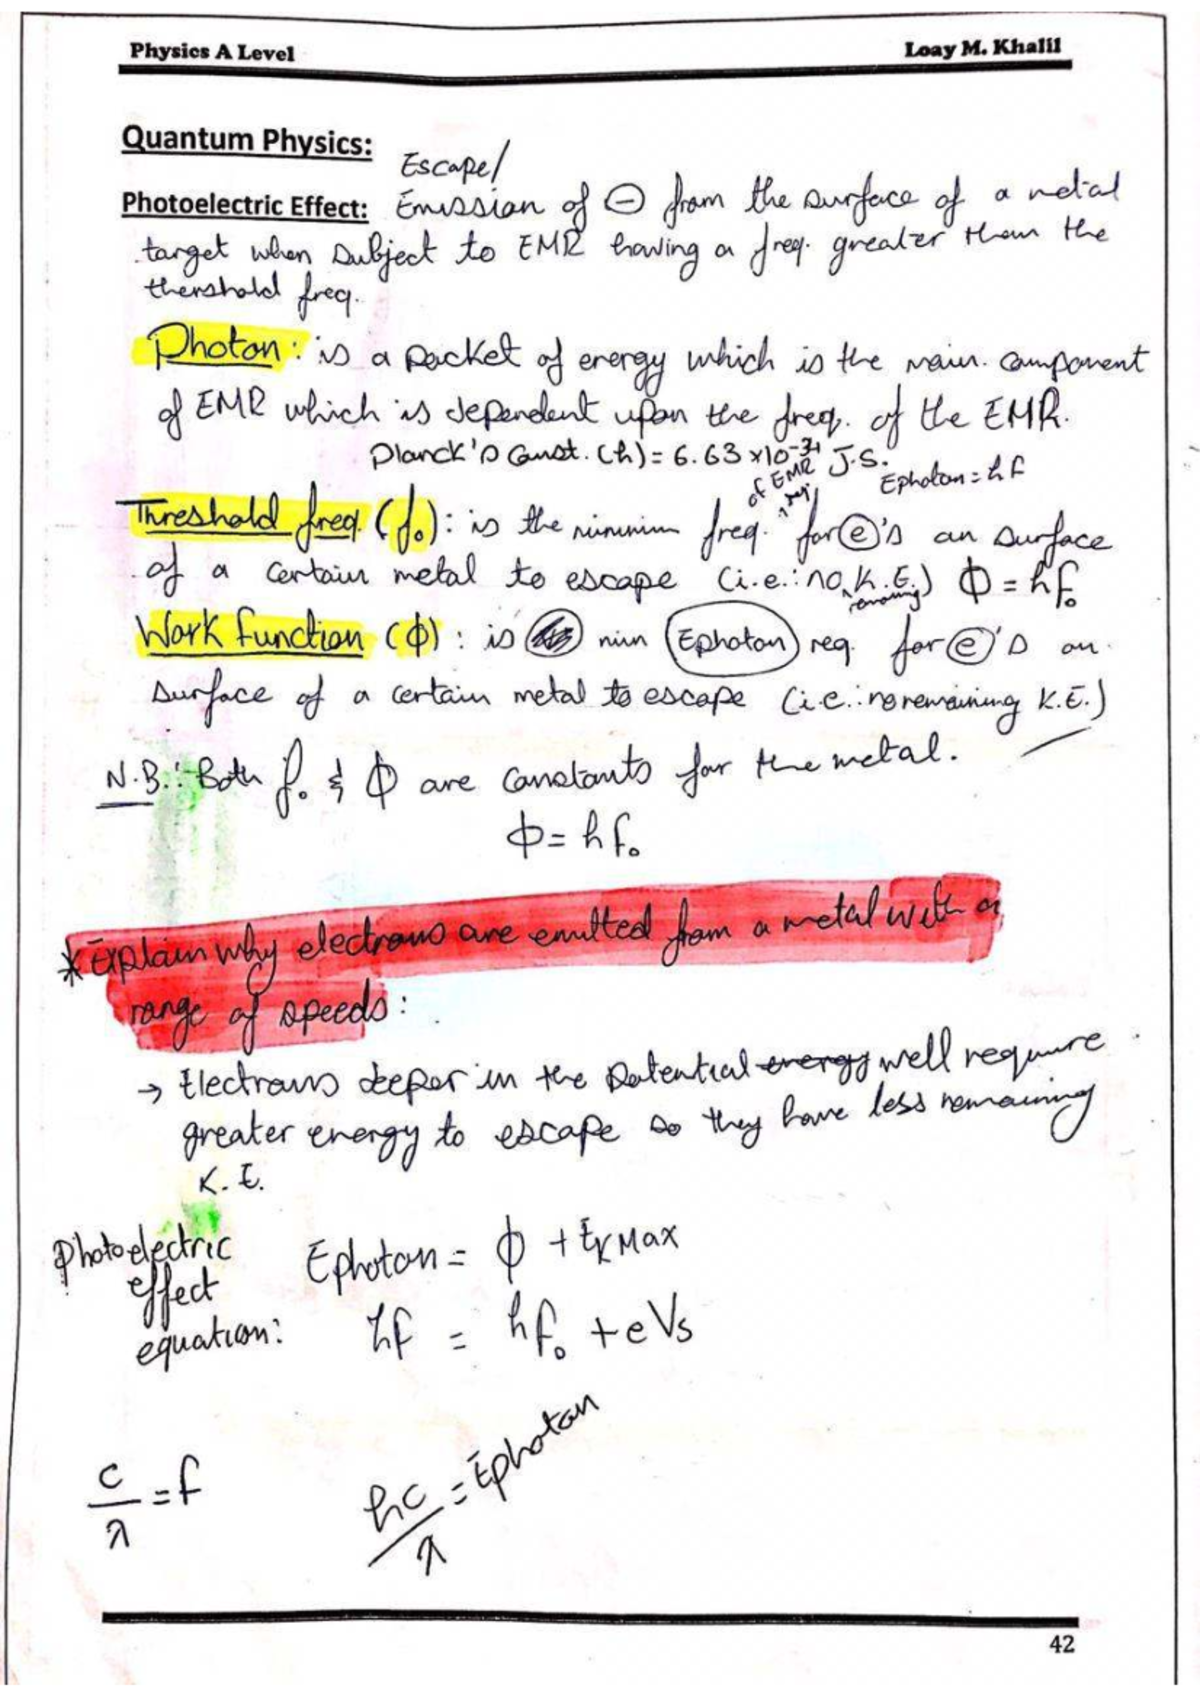 Physics A Level
Loay M. Khalil
Quantum Physics:
Escape/
Photoelectric Effect: Emission of ⊖ from the surface of a metal
target when subject to EMR having a freq. greater than the
thershold freq.
Photon: is a packet of energy which is the main component
of EMR which is dependent upon the freq. of the EMR.
Planck's Const. (h) = 6.63 × 10⁻³⁴ J.S.
Ephoton = hf
of EMR req.
Threshold freq. (f₀): is the minimum freq. for e's on surface
of a certain metal to escape (i.e.: no remaining K.E.) Φ = hf₀
Work function (Φ): is min Ephoton req. for e's on
surface of a certain metal to escape (i.e.: no remaining K.E.)
N.B.: Both f₀ & Φ are constants for the metal.
Φ = hf₀
* Explain why electrons are emitted from a metal with a
range of speeds:
→ Electrons deeper in the potential energy well require
greater energy to escape so they have less remaining
K.E.
Photoelectric
effect
equation:
Ephoton = Φ + EkMax
hf = hf₀ + eVs
c/λ = f
hc/λ = Ephoton
42